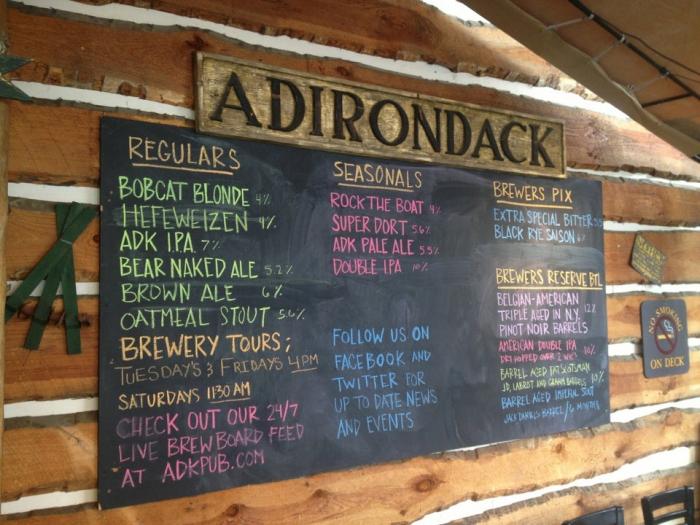 ADIRONDACK
REGULARS
BOBCAT BLONDE 4%
HEFEWEIZEN 4%
ADK IPA 7%
BEAR NAKED ALE 5.2%
BROWN ALE 6%
OATMEAL STOUT 5.6%
BREWERY TOURS;
TUESDAY'S & FRIDAYS 4PM
SATURDAYS 1130 AM
CHECK OUT OUR 24/7
LIVE BREW BOARD FEED
AT ADKPUB.COM
SEASONALS
ROCK THE BOAT 4%
SUPER DORT 5.6%
ADK PALE ALE 5.5%
DOUBLE IPA 10%
FOLLOW US ON
FACEBOOK AND
TWITTER FOR
UP TO DATE NEWS
AND EVENTS
BREWERS PIX
EXTRA SPECIAL BITTER 5.5
BLACK RYE SAISON 6%
BREWERS RESERVE BTL
BELGIAN-AMERICAN
TRIPLE AGED IN N.Y. 12%
PINOT NOIR BARRELS
AMERICAN DOUBLE IPA
DRY HOPPED OVER 2 WKS 10%
BARREL AGED FAT SCOTSMAN
JD, LABROT AND GRAHAM BARRELS 10%
BARREL AGED IMPERIAL STOUT
JACK DANIEL'S BARREL/6 MONTHS
NO SMOKING
ON DECK